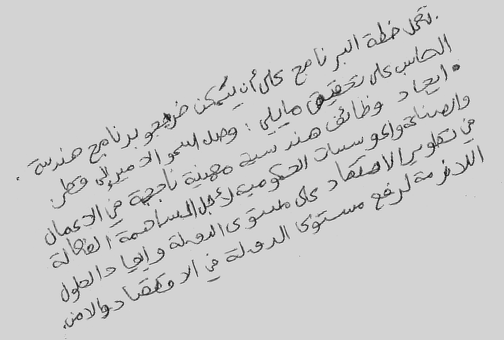 .تعمل خطة البرنامج على أن يتمكن خريجو برنامج هندسة .
الحاسب على تحقيق مايلي : وصل لسمو الامير إلى قطر
• ايجاد وظائف هندسية مهنية ناجحة في الاعمال
والصناعة والمؤسسات الحكومية لأجل المساهمة الفعالة
في تطوير الاقتصاد على مستوى الدولة وايجاد الحلول
اللازمة لرفع مستوى الدولة في الاقتصاد والامن.